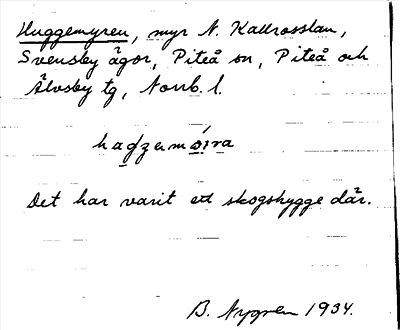 Huggemyren, myr N. Kallrosslan,
Svensby ägor, Piteå sn, Piteå och
Älvsby tg, Norrb. l.
hadzemóira
Det har varit ett skogshygge där.
B. Nygren 1934.